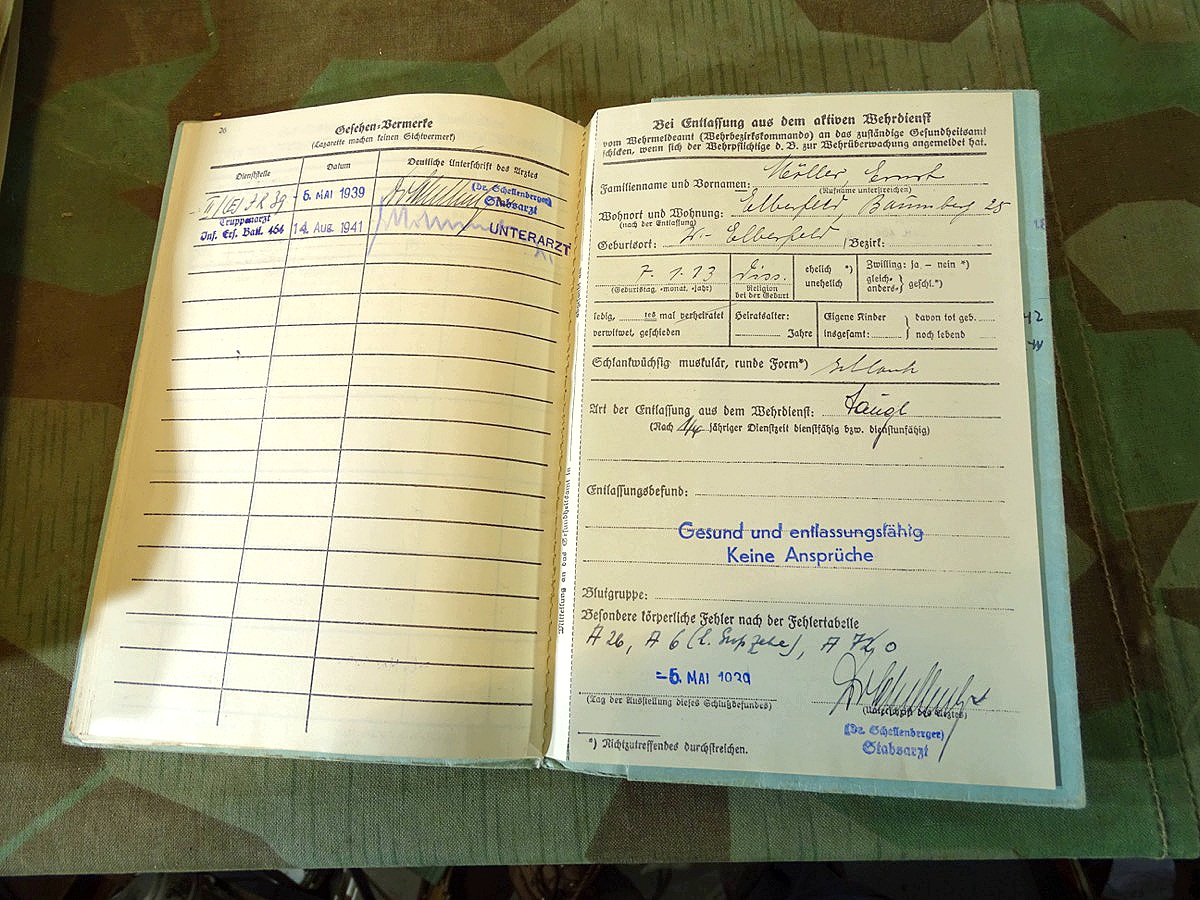 26
Gesehen-Vermerke
(Lazarette machen keinen Sichtvermerk)
Dienststelle
Datum
Deutliche Unterschrift des Arztes
II/(E) J.R. 39
-5. MAI 1939
(Dr. Schellenberger)
Stabsarzt
Truppenarzt
Inf. Ers. Batl. 464
14. Aug. 1941
UNTERARZT
Bei Entlassung aus dem aktiven Wehrdienst
vom Wehrmeldeamt (Wehrbezirkskommando) an das zuständige Gesundheitsamt
schicken, wenn sich der Wehrpflichtige d. B. zur Wehrüberwachung angemeldet hat.
Familienname und Vornamen: Möller, Ernst
(Rufname unterstreichen)
Wohnort und Wohnung: Elberfeld, 25
(nach der Entlassung)
Geburtsort: W.-Elberfeld / Bezirk:
7. 1. 13
(Geburtstag, -monat, -jahr)
Diss.
Religion
bei der Geburt
ehelich *)
unehelich
Zwilling: ja – nein *)
gleich-
anders- } geschl.*)
ledig, tes mal verheiratet
verwitwet, geschieden
Heiratsalter:
Jahre
Eigene Kinder
insgesamt:
davon tot geb.
noch lebend
Schlankwüchsig muskulär, runde Form*) schlank
Art der Entlassung aus dem Wehrdienst: taugl
(Nach jähriger Dienstzeit dienstfähig bzw. dienstunfähig)
Entlassungsbefund:
Gesund und entlassungsfähig
Keine Ansprüche
Blutgruppe:
Besondere körperliche Fehler nach der Fehlertabelle
A 26, A 6 (
-5. MAI 1939
(Tag der Ausstellung dieses Schlußbefundes)
(Unterschrift des Arztes)
(Dr. Schellenberger)
Stabsarzt
*) Nichtzutreffendes durchstreichen.